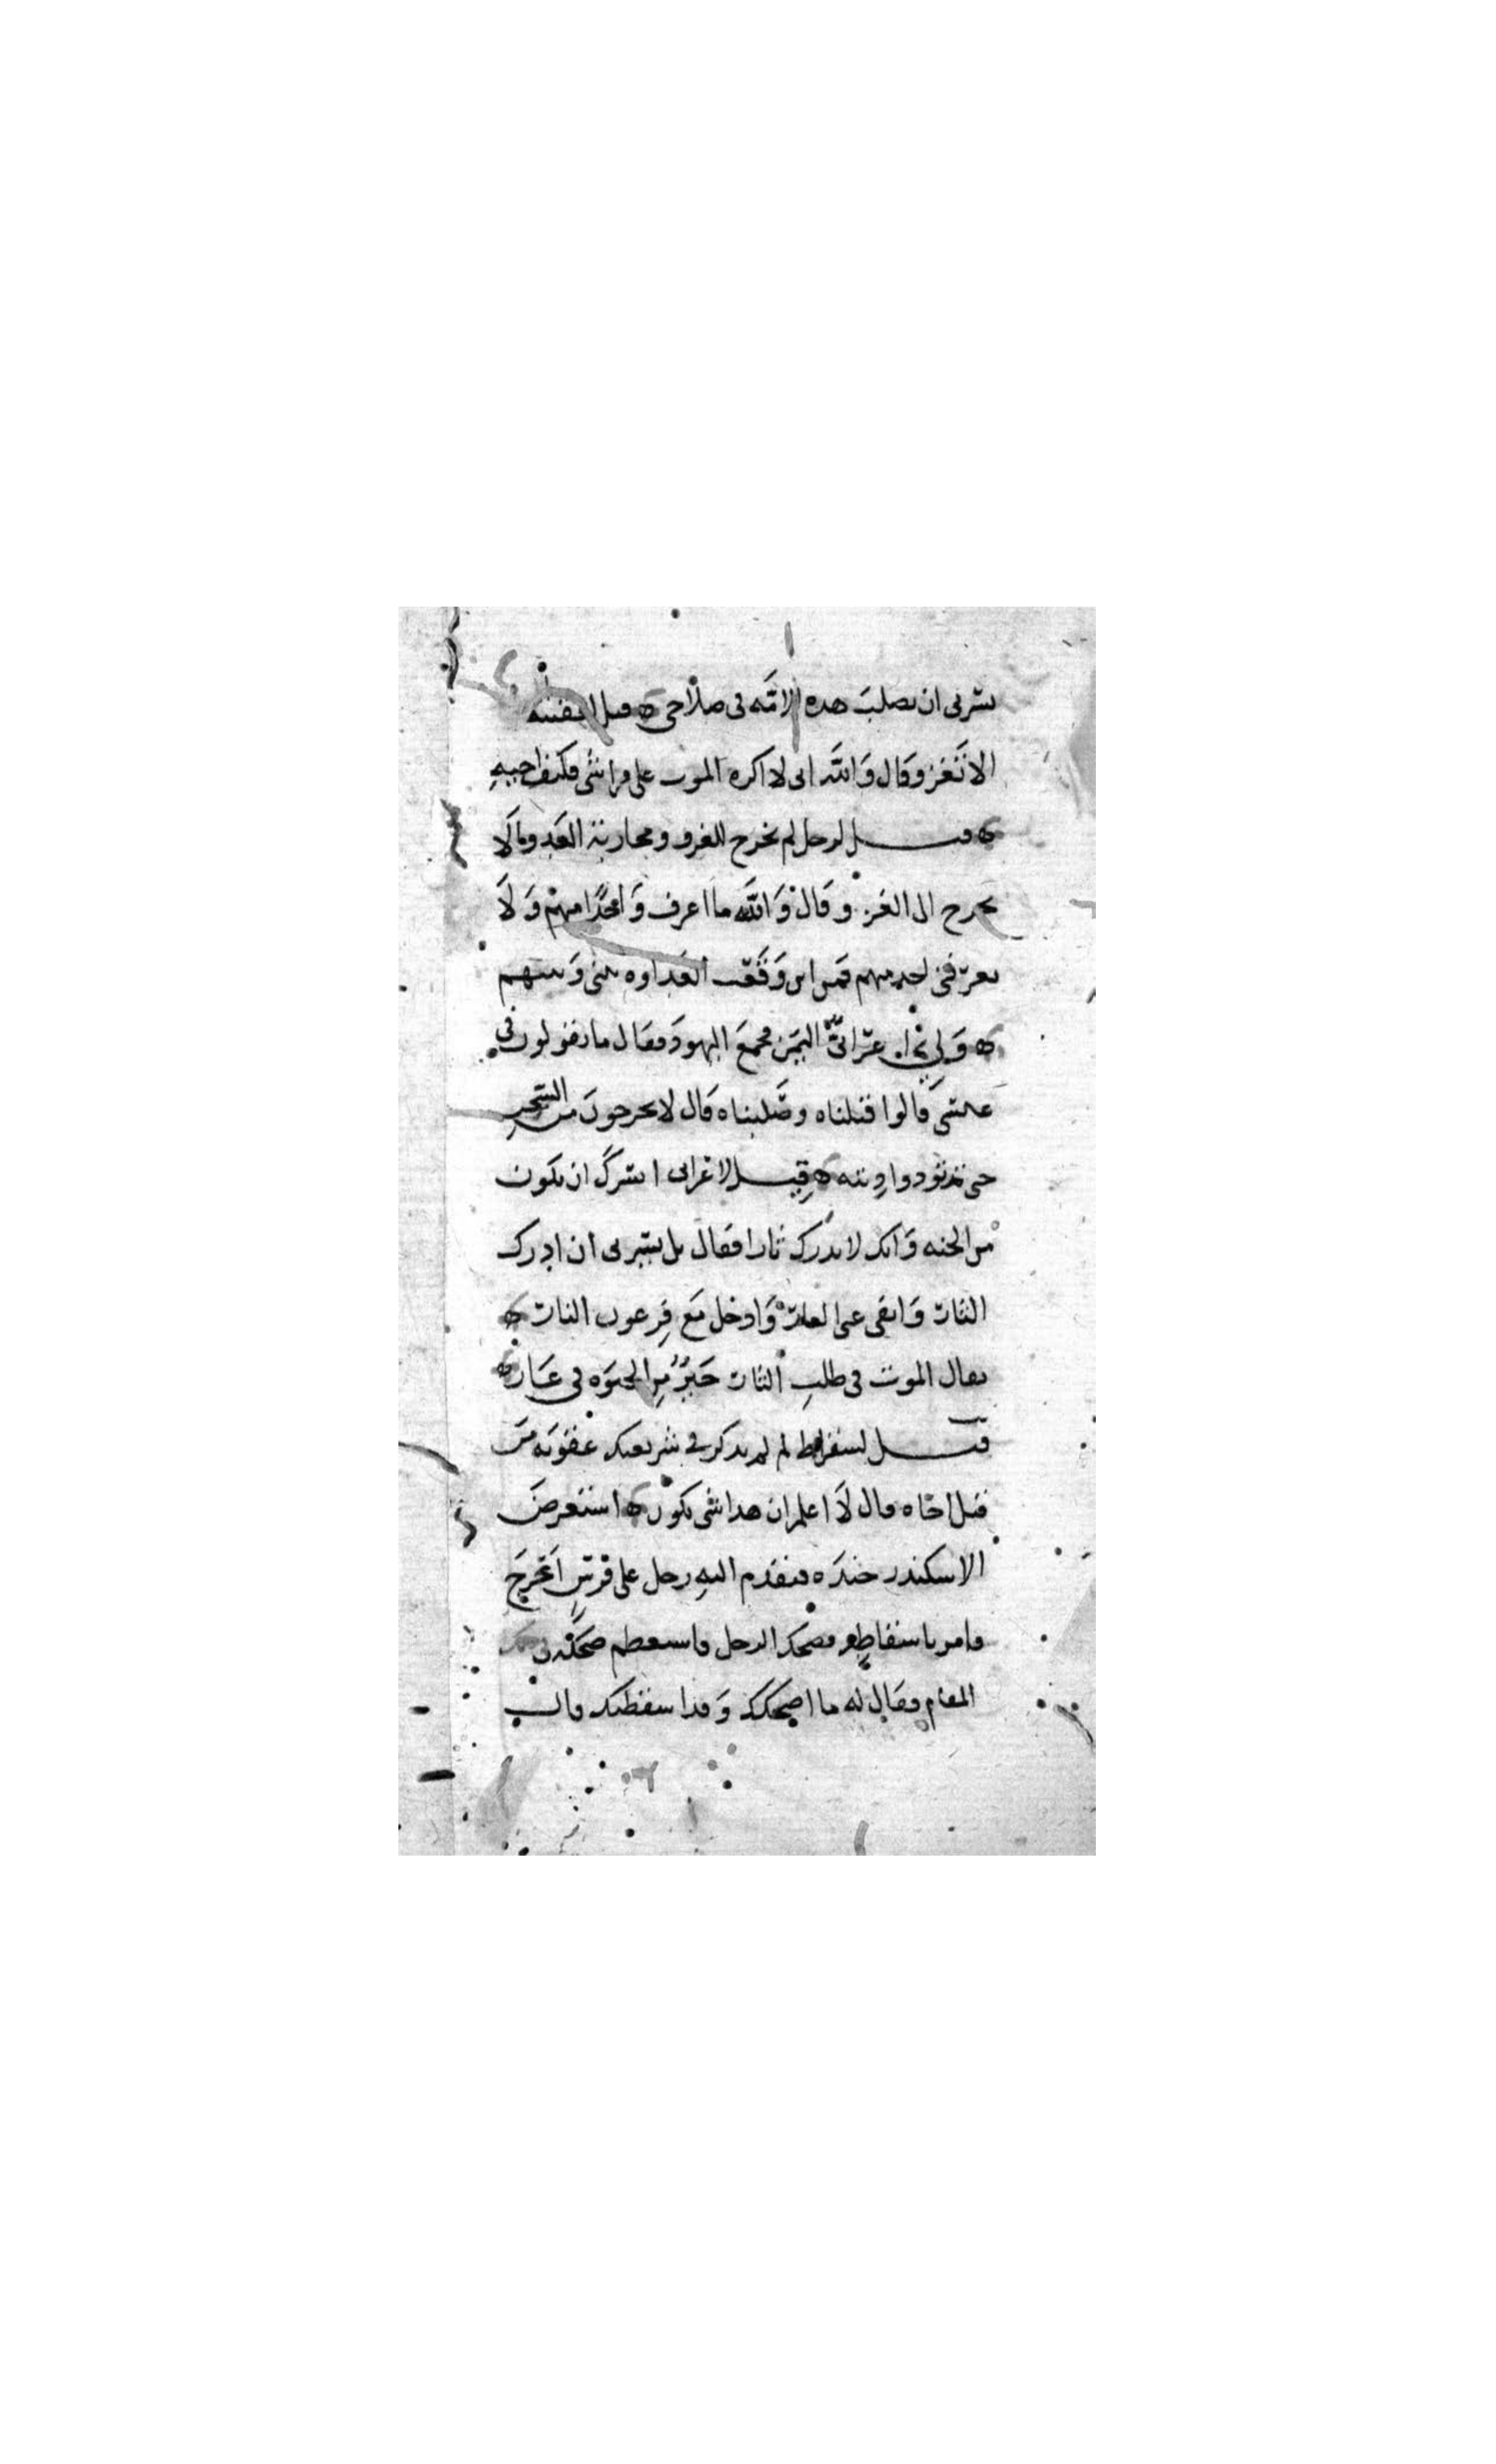 يسرني ان يصلب هذه الامة في صلاحي ه قيل
الا تغزو قال والله اني لاكره الموت على فراشي فكيف
ه قيل لرجل لم تخرج للغزو ومحاربة العدو قال لا
يخرج الى الغزو قال والله ما اعرف واحدا منهم ولا
يعرفني احد منهم فمن اين وقعت العداوة بيني وبينهم
ه ولي اعرابي اليمن فجمع اليهود فقال ما تقولون في
عيسى قالوا قتلناه وصلبناه قال لا تخرجون من السجن
حتى تؤدوا ديته ه قيل لاعرابي ايسرك ان تكون
من الجنة وانك لا تدرك ثارا فقال بل يسرني ان ادرك
الثار وانفي عني العار وادخل مع فرعون النار ه
يقال الموت في طلب الثار خير من الحيوة في عار ه
قيل لسقراط لم لم تذكر في شريعتك عقوبة من
قتل اخاه قال لا اعلم ان هذا شي يكون ه استعرض
الاسكندر جنده فتقدم اليه رجل على فرس اعرج
فامر باسقاطه فضحك الرجل فاستعظم ضحكه في ذلك
المقام فقال له ما اضحكك وقد اسقطتك قال